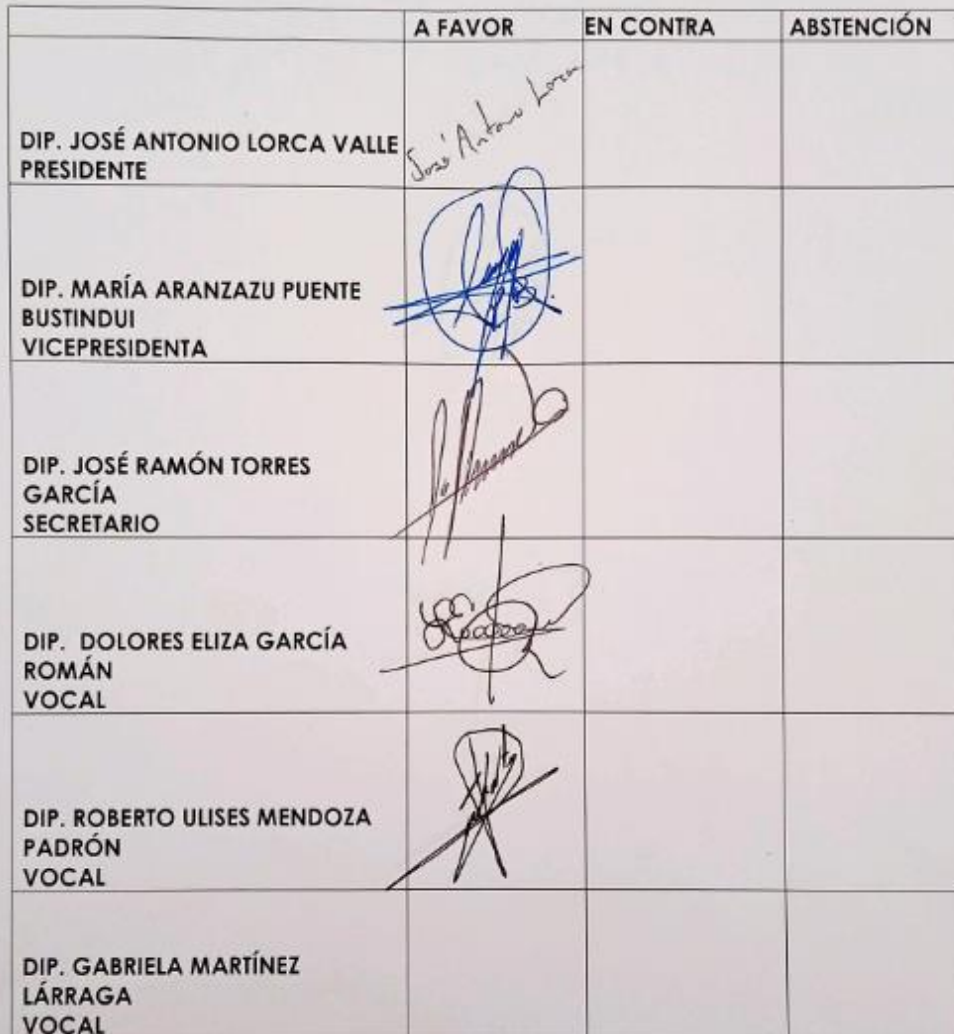 A FAVOR EN CONTRA ABSTENCIÓN
José Antonio Lorca
DIP. JOSÉ ANTONIO LORCA VALLE
PRESIDENTE
DIP. MARÍA ARANZAZU PUENTE
BUSTINDUI
VICEPRESIDENTA
DIP. JOSÉ RAMÓN TORRES
GARCÍA
SECRETARIO
DIP. DOLORES ELIZA GARCÍA
ROMÁN
VOCAL
DIP. ROBERTO ULISES MENDOZA
PADRÓN
VOCAL
DIP. GABRIELA MARTÍNEZ
LÁRRAGA
VOCAL